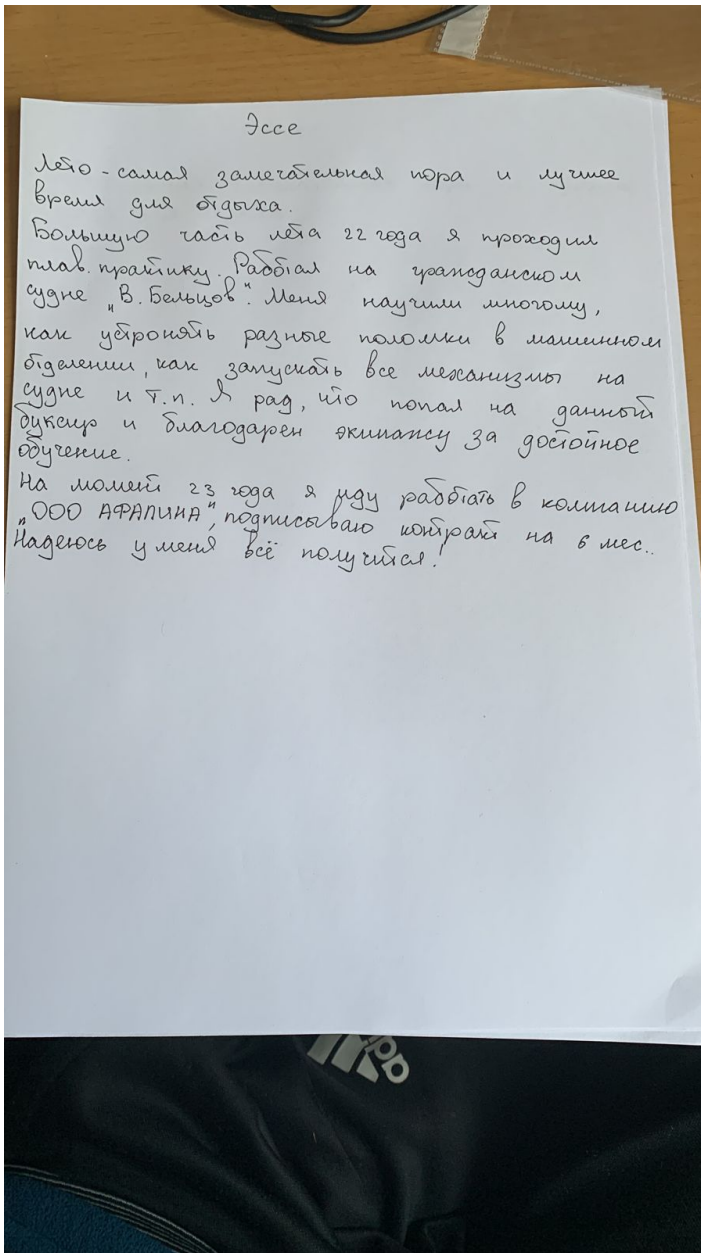 Эссе
Лето - самая замечательная пора и лучшее
время для отдыха.
Большую часть лета 22 года я проходил
плав. практику. Работал на гражданском
судне „В. Бельцов". Меня научили многому,
как устронять разные поломки в машинном
отделении, как запускать все механизмы на
судне и т.п. Я рад, что попал на данный
буксир и благодарен экипажу за достойное
обучение.
На момент 23 года я иду работать в компанию
„ООО АФАЛИНА", подписываю контракт на 6 мес..
Надеюсь у меня всё получится!
adi